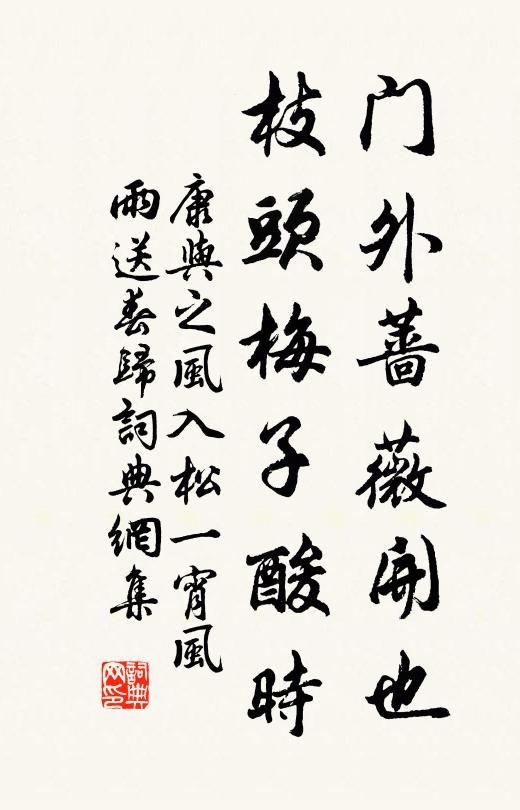 门外薔薇開也
枝頭梅子酸時
康與之風入松一宵風
雨送春歸詞典網集
詞典网印